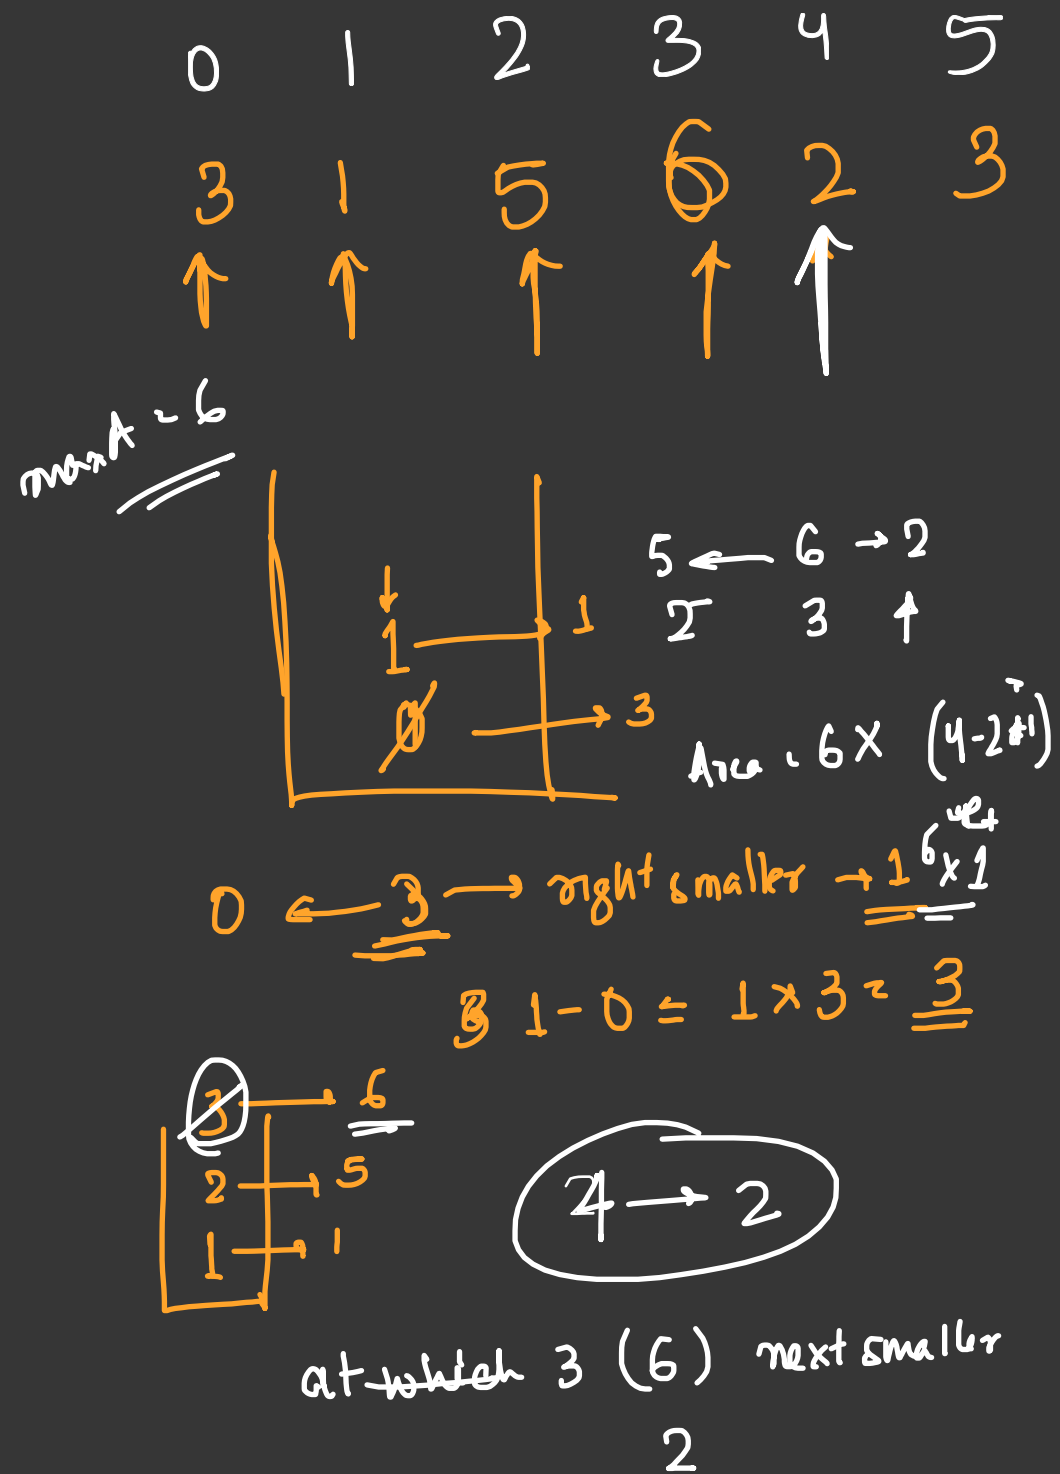 0 1 2 3 4 5
3 1 5 6 2 3
maxA = 6
5 ← 6 → 2
2 3
1 → 1
0 → 3
Area = 6 x (4-2-1)
6 x 1
0 ← 3 → right smaller → 1
1 - 0 = 1 x 3 = 3
3 → 6
2 → 5
1 → 1
4 → 2
at which 3 (6) next smaller
2